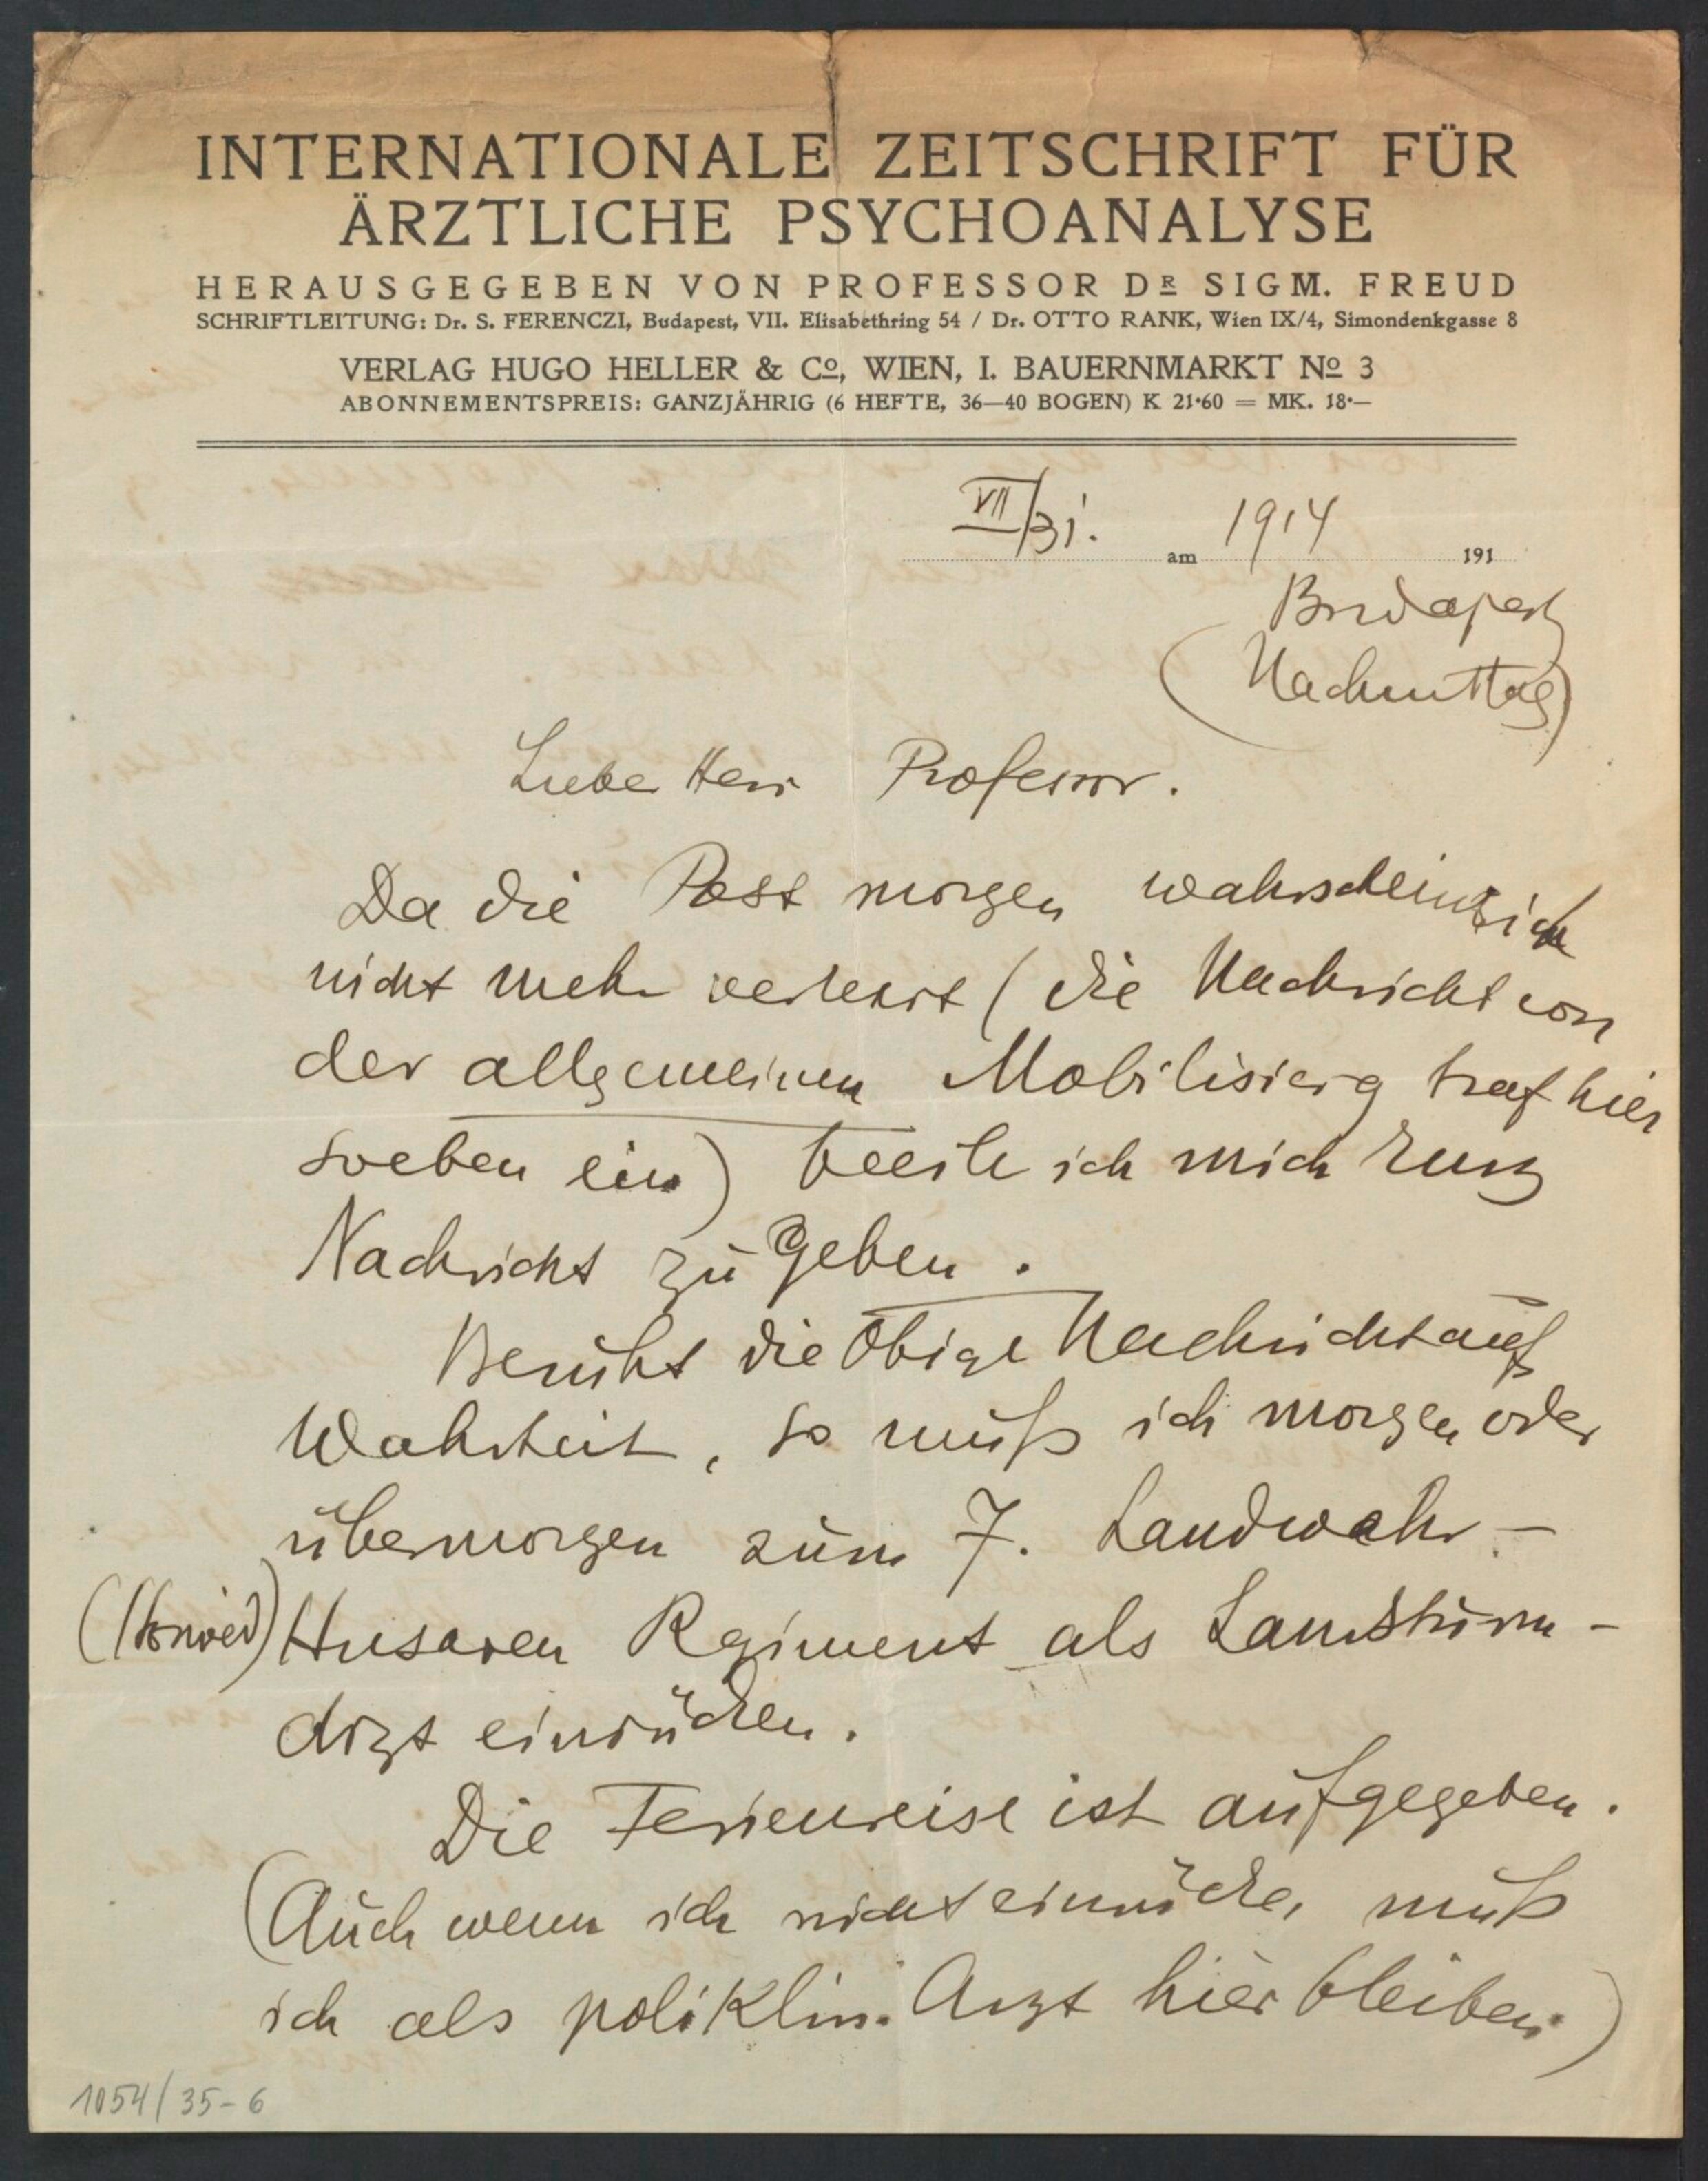 INTERNATIONALE ZEITSCHRIFT FÜR
ÄRZTLICHE PSYCHOANALYSE
HERAUSGEGEBEN VON PROFESSOR DR SIGM. FREUD
SCHRIFTLEITUNG: Dr. S. FERENCZI, Budapest, VII. Elisabethring 54 / Dr. OTTO RANK, Wien IX/4, Simondenkgasse 8
VERLAG HUGO HELLER & Co, WIEN, I. BAUERNMARKT No 3
ABONNEMENTSPREIS: GANZJÄHRIG (6 HEFTE, 36—40 BOGEN) K 21·60 = MK. 18·—
VII/31. am 1914 191
Budapest
(Nachmittag)
Lieber Herr Professor.
Da die Post morgen wahrscheinlich
nicht mehr verkehrt (die Nachricht von
der allgemeinen Mobilisierg traf hier
soeben ein) beeile ich mich kurz
Nachricht zu geben.
Beruht die obige Nachricht auf
Wahrheit, so muß ich morgen oder
übermorgen zum 7. Landwehr-
(Honvéd) Husaren Regiment als Landsturm-
arzt einrücken.
Die Ferienreise ist aufgegeben.
(Auch wenn ich nicht einrücke, muß
ich als poliklin. Arzt hier bleiben.)
1054/35-6